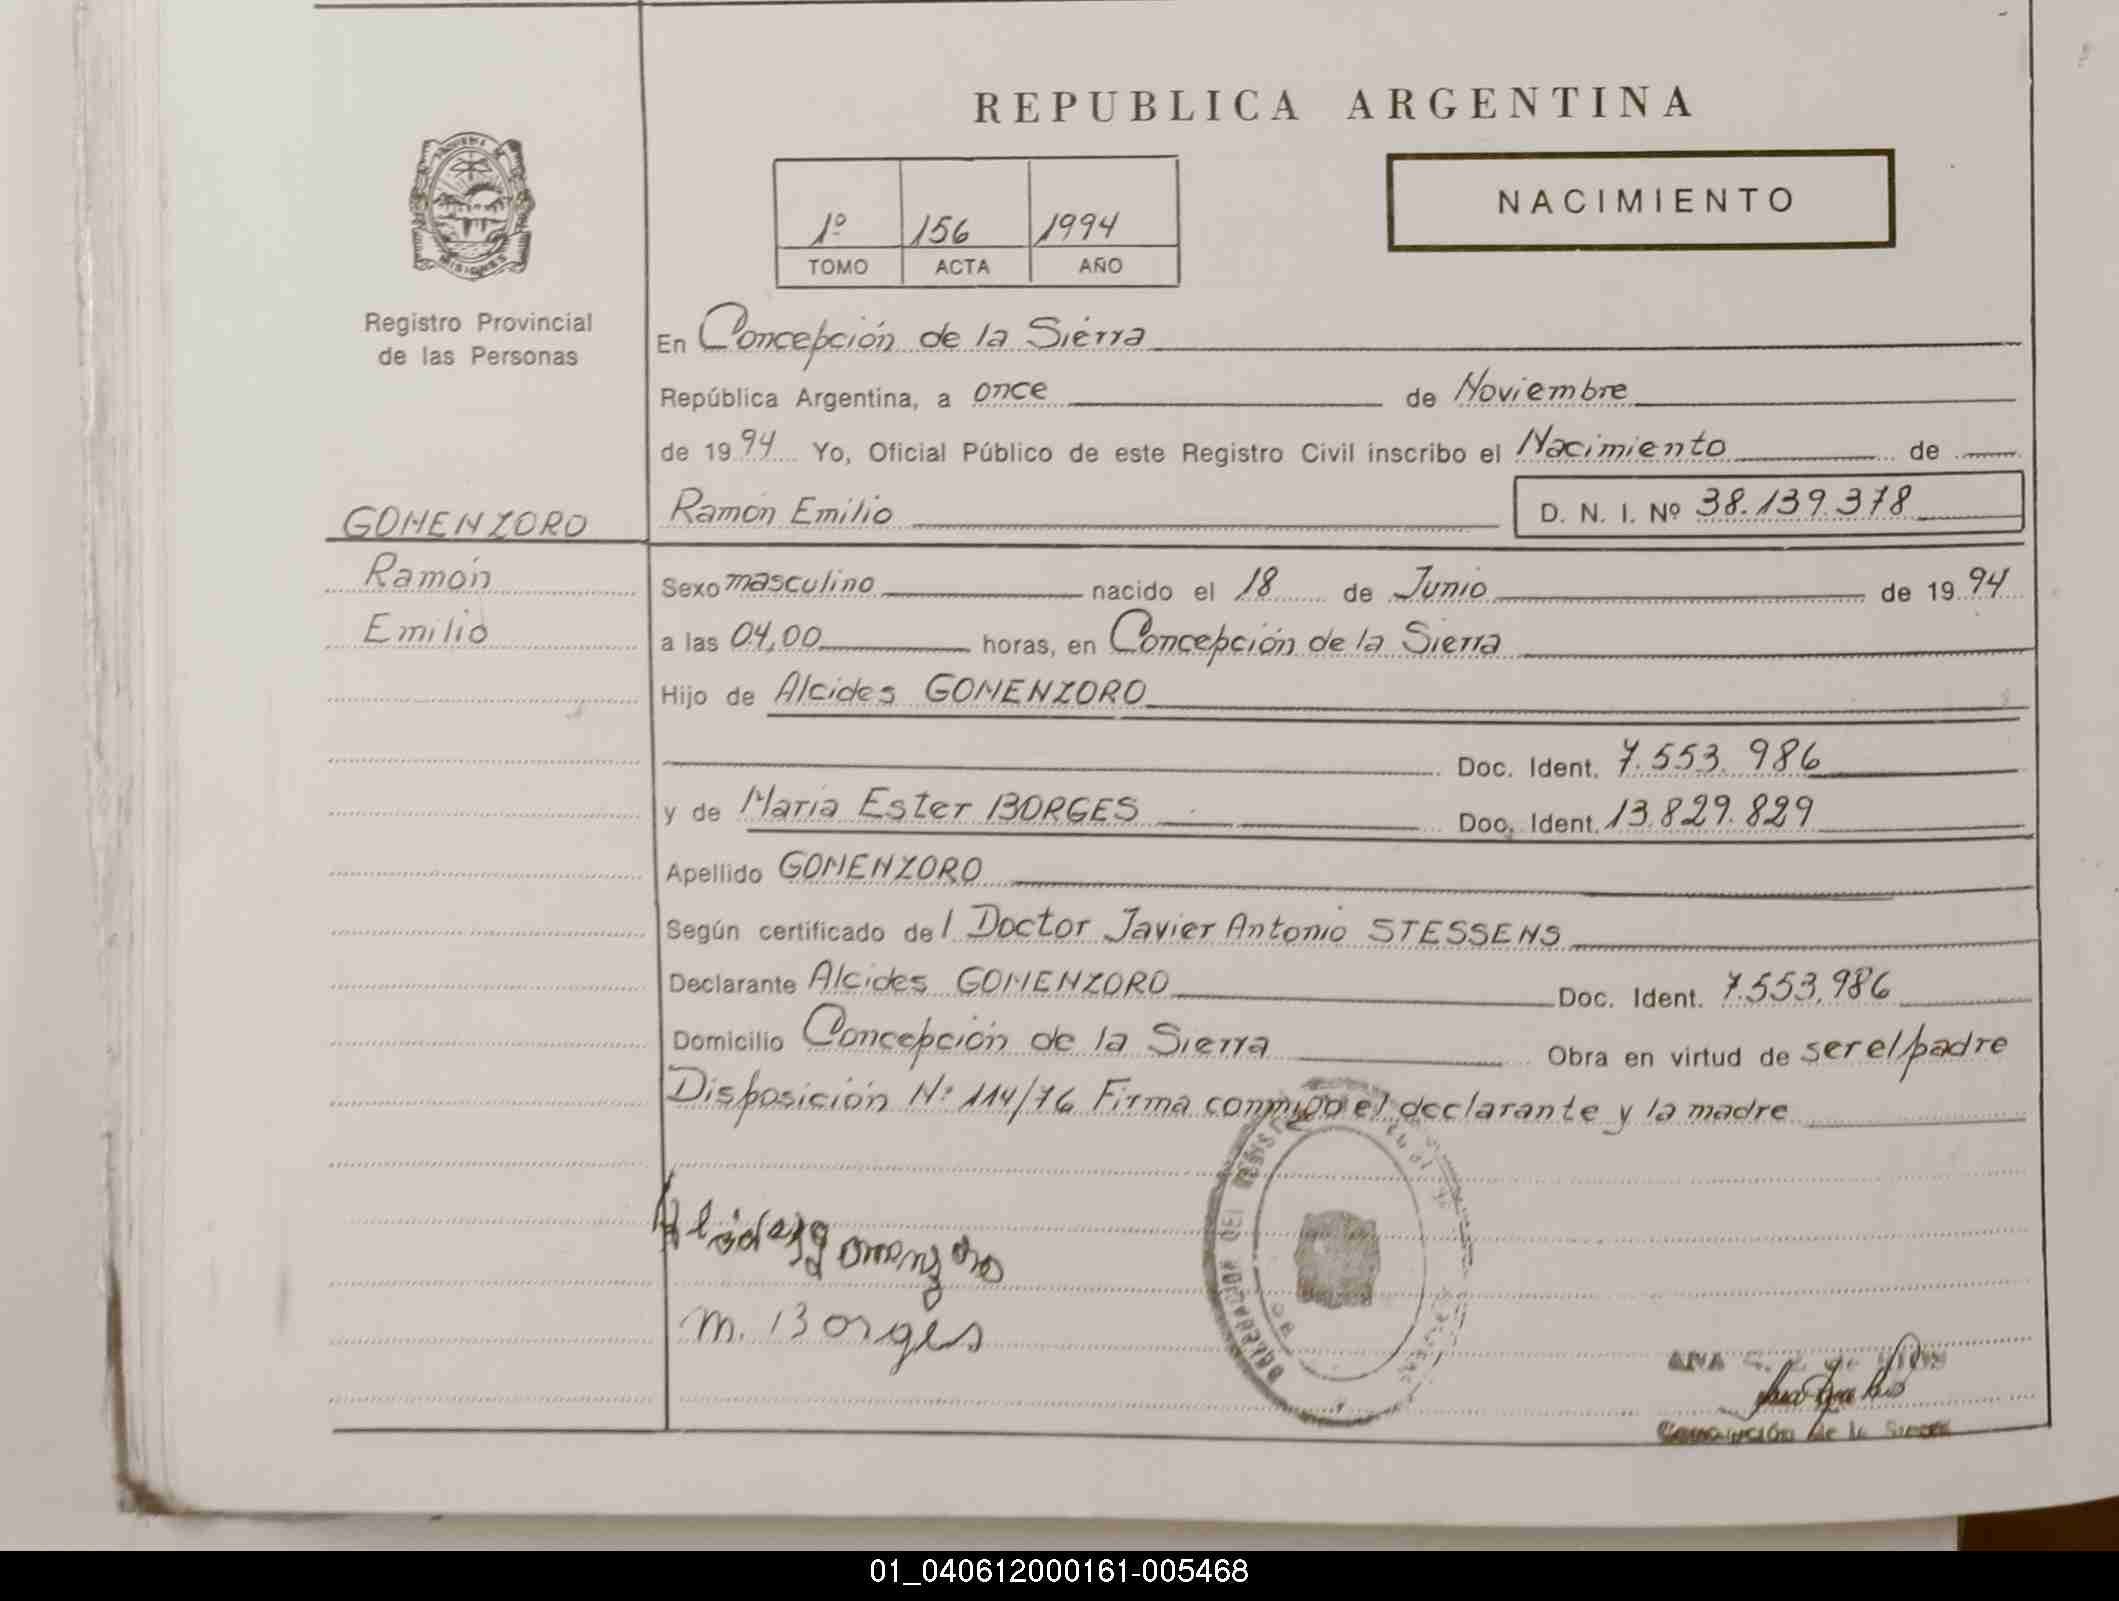 REPUBLICA ARGENTINA
NACIMIENTO
1º 156 1994
TOMO ACTA AÑO
MISIONES
Registro Provincial
de las Personas
En Concepción de la Sierra
República Argentina, a once de Noviembre
de 1994 Yo, Oficial Público de este Registro Civil inscribo el Nacimiento de
GOMENZORO
Ramón Emilio D. N. I. Nº 38.139.378
Ramón
Sexo masculino nacido el 18 de Junio de 1994
Emilio
a las 04,00 horas, en Concepción de la Sierra
Hijo de Alcides GOMENZORO
Doc. Ident. 7.553.986
y de María Ester BORGES Doc. Ident. 13.829.829
Apellido GOMENZORO
Según certificado del Doctor Javier Antonio STESSENS
Declarante Alcides GOMENZORO Doc. Ident. 7.553.986
Domicilio Concepción de la Sierra Obra en virtud de ser el padre
Disposición Nº 114/76 Firma conmigo el declarante y la madre
Alcides Gomenzoro
M. Borges
ANA
Concepción de la Sierra
01_040612000161-005468